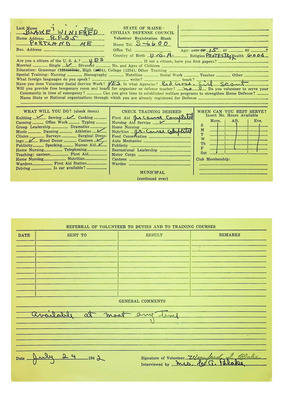 Last Name BLAKE WINIFRED
Home Address R.F.D.
PORTLAND ME
STATE OF MAINE
CIVILIAN DEFENSE COUNCIL
Volunteer Registration Blank
Home Tel. 3-6600
Office Tel.
Country of Birth U.S.A
Age 15
Religion PROTESTANT GOOD
Are you a citizen of the U. S. A.? YES If not a citizen, have you first papers?
Married Single Divorced No. and Ages of Children
Education: Grammar High College Other Training
Special Training: Nursing Stenography Nutrition Social Work Teacher Other
What foreign languages do you speak? write?
Have you done Volunteer Social Service Work? Yes What Agencies? Red Cross Girl Scout
Will you provide free temporary room and board for organizer or defense teacher? no Do you volunteer to serve your
Community in time of emergency? Can you give time to established welfare programs to strengthen Home Defense?
Name State or National organizations through which you are already registered for Civilian Defense
WHAT WILL YOU DO? (check items)
Knitting Sewing Cooking
Canning Office Work Typing
Group Leadership Dramatics
Music Dancing Athletics
Clinics Surgical Dressings
Blood Donor Canteen
Publicity Speaking Nurses Aid
Home Nursing Telephoning
Teaching First Aid
Home Nursing Nutrition
Wardens First Aid
Driving Is car available?
CHECK TRAINING DESIRED
First Aid course completed
Nursing Aid Service
Home Nursing
Nutrition course completed
Food Conservation
Auto Mechanics
Publicity
Recreational Leadership
Motor Corps
Canteen
Warden
WHEN CAN YOU BEST SERVE?
Insert No. Hours Available
Morn. Aft. Eve.
M
T
W
Th
F
Sat
Club Membership:
MUNICIPAL
(continued over)
REFERRAL OF VOLUNTEER TO DUTIES AND TO TRAINING COURSES
DATE SENT TO RESULT REMARKS
GENERAL COMMENTS
Available at most any time
Date July 24 1942 Signature of Volunteer Winifred Blake
Interviewed by Mrs. Blake